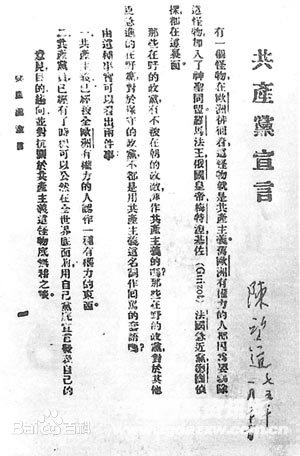 共產黨宣言
陳望道
有一個怪物在歐洲徘徊着這怪物就是共產主義舊歐洲有權力的人都因爲要驅除
這怪物加入了神聖同盟羅馬法王俄國皇帝梅特涅基佐（Guizot）法國急進黨德國偵
探都在這裏面
那些在野的政黨有不被在朝的政敵誣作共產主義的嗎？那些在野的政黨對於其他
更急進的在野黨對於保守的政黨不都是用共產主義這名詞作回罵的套語嗎？
由這種事實可以看出兩件事
一、共產主義已經被全歐洲有權力的人認作一種有權力的東西
二、共產黨員已經有了時機可以公然在全世界底面前用自己黨底宣言發表自己的
意見目的趨向並對抗關於共產主義這怪物底無稽之談
共產黨宣言
一
Bai百科